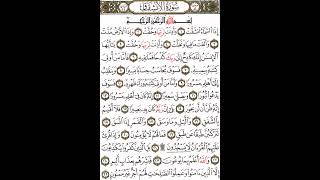 سُورَةُ الانشِقَاقِ
بِسْمِ اللَّهِ الرَّحْمَٰنِ الرَّحِيمِ
إِذَا السَّمَاءُ انشَقَّتْ ۝ وَأَذِنَتْ لِرَبِّهَا وَحُقَّتْ ۝ وَإِذَا الْأَرْضُ مُدَّتْ
۝ وَأَلْقَتْ مَا فِيهَا وَتَخَلَّتْ ۝ وَأَذِنَتْ لِرَبِّهَا وَحُقَّتْ ۝ يَٰأَيُّهَا
الْإِنسَٰنُ إِنَّكَ كَادِحٌ إِلَىٰ رَبِّكَ كَدْحًا فَمُلَٰقِيهِ ۝ فَأَمَّا مَنْ أُوتِيَ
كِتَٰبَهُ بِيَمِينِهِ ۝ فَسَوْفَ يُحَاسَبُ حِسَابًا يَسِيرًا ۝ وَيَنقَلِبُ إِلَىٰ
أَهْلِهِ مَسْرُورًا ۝ وَأَمَّا مَنْ أُوتِيَ كِتَٰبَهُ وَرَاءَ ظَهْرِهِ ۝ فَسَوْفَ
يَدْعُوا ثُبُورًا ۝ وَيَصْلَىٰ سَعِيرًا ۝ إِنَّهُ كَانَ فِي أَهْلِهِ مَسْرُورًا
۝ إِنَّهُ ظَنَّ أَن لَّن يَحُورَ ۝ بَلَىٰ إِنَّ رَبَّهُ كَانَ بِهِ بَصِيرًا ۝ فَلَا أُقْسِمُ
بِالشَّفَقِ ۝ وَاللَّيْلِ وَمَا وَسَقَ ۝ وَالْقَمَرِ إِذَا اتَّسَقَ ۝
لَتَرْكَبُنَّ طَبَقًا عَن طَبَقٍ ۝ فَمَا لَهُمْ لَا يُؤْمِنُونَ ۝ وَإِذَا قُرِئَ
عَلَيْهِمُ الْقُرْءَانُ لَا يَسْجُدُونَ ۩ ۝ بَلِ الَّذِينَ كَفَرُوا يُكَذِّبُونَ
۝ وَاللَّهُ أَعْلَمُ بِمَا يُوعُونَ ۝ فَبَشِّرْهُم بِعَذَابٍ أَلِيمٍ ۝
إِلَّا الَّذِينَ ءَامَنُوا وَعَمِلُوا الصَّٰلِحَٰتِ لَهُمْ أَجْرٌ غَيْرُ مَمْنُونٍ ۝